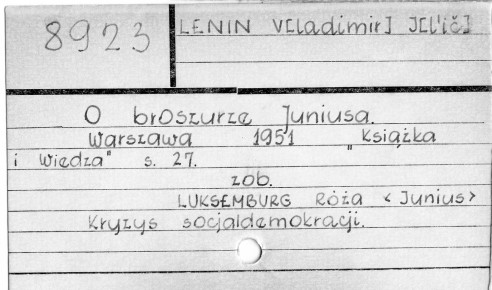 8923
LENIN V[ladimir] J[l'ič]
O broszurze Juniusa.
Warszawa 1951 „Książka
i Wiedza" s. 27.
zob.
LUKSEMBURG Róża <Junius>
Kryzys socjaldemokracji.